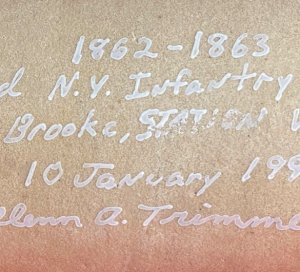 1862-1863
d N.Y. Infantry
Brooke, STATION V
10 January 199
lenn A. Trimme